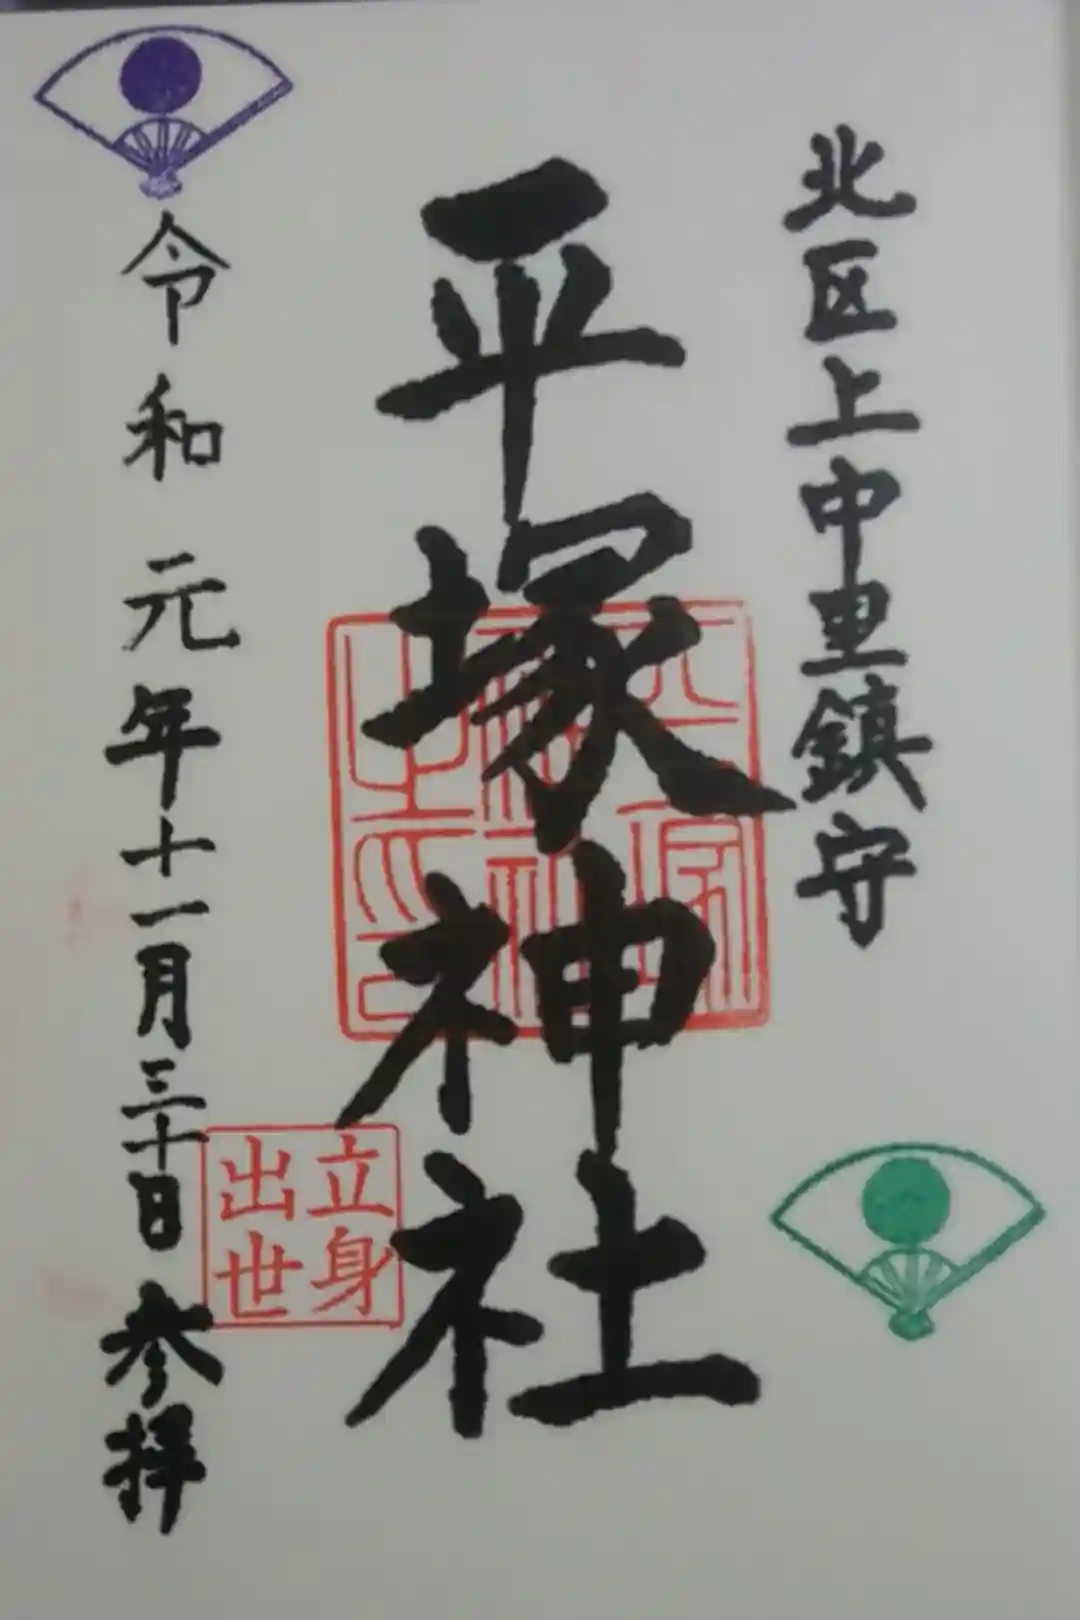 北区上中里鎮守
平塚神社
平塚神社之印
立身
出世
令和元年十一月三十日参拝